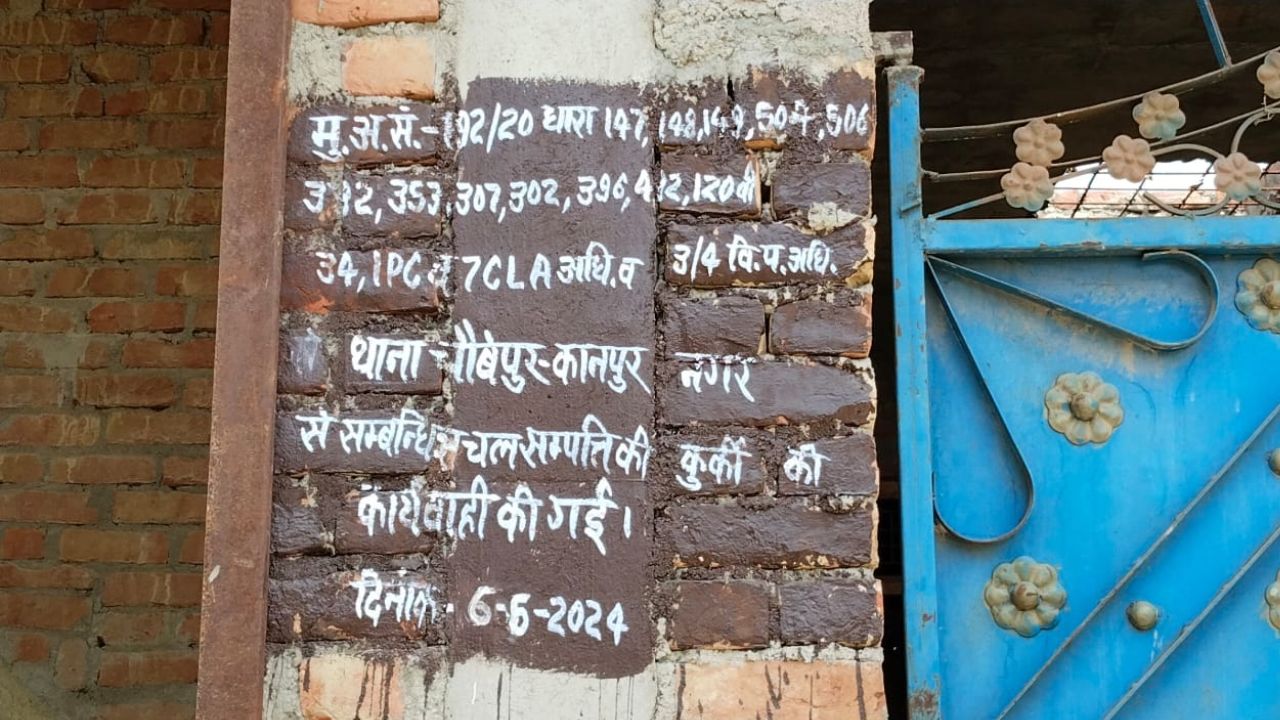 मु.अ.सं.-192/20 धारा 147, 148,149,504,506
392,353,307,302,396,412,120बी
34,IPC व 7CLA अधि.व 3/4 वि.प.अधि.
थाना-चौबेपुर-कानपुर नगर
से सम्बन्धित चल सम्पत्ति की कुर्की की
कार्यवाही की गई।
दिनांक- 6-6-2024